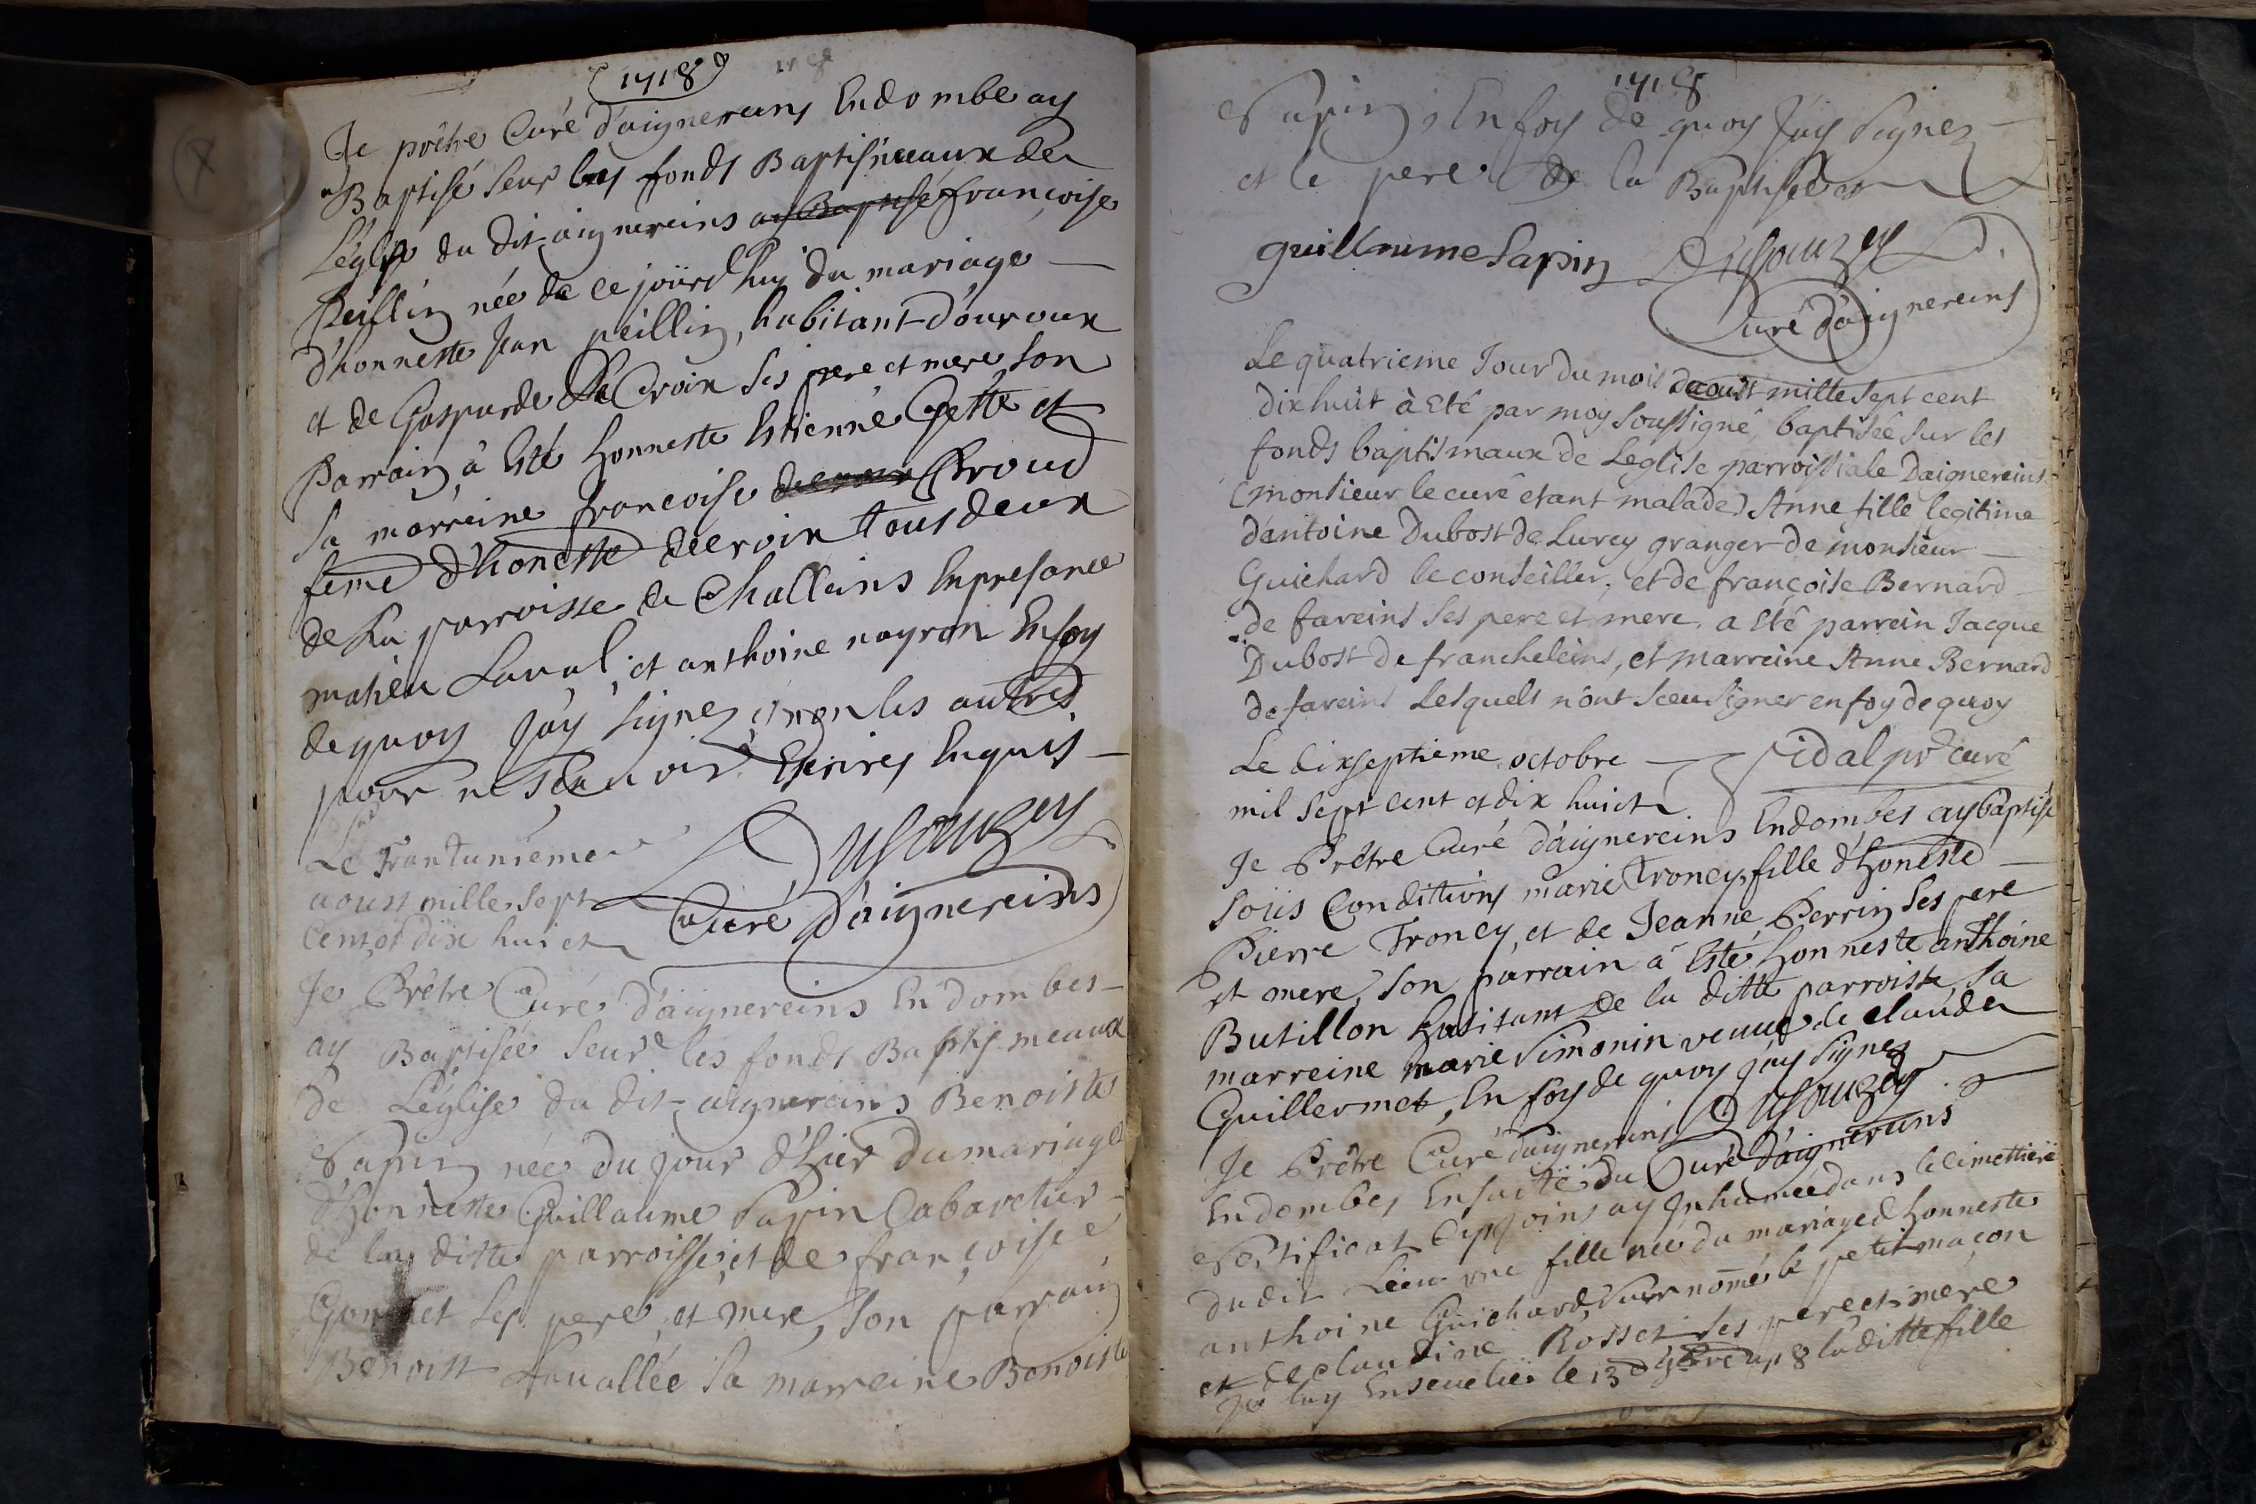 1718
Je prêtre Curé d'aignereins Endombe ay
Baptisé Seur les fonds Baptismeaux de
Léglise du dit aignereins ay Baptisé françoise
Peillin née de ce jourd huy du mariage
d'honneste Jan peillin, habitant d'ouroux
et de Gasparde De Croix ses pere et mere son
Parrain à Esté honneste Estienne Gette et
Sa marreine francoise decroix Chroud
feme d'honeste decroix tous deux
de La parroisse de Challeins En presance
mahieu Laval, et anthoine nayron En foy
de quoy J'ay signez, et non les autres
pour ne sçauoir Escrire, Enquis
DuSouzey
Curé D'aignereins
Le Trantunième
aoust mille, sept
Cent, et dix huict
Je Prêtre Curé D'aignereins En dombes
ay Baptisée Seur les fonds Baptismeaux
de Léglise du dit aignereins Benoiste
Sapin née du jour d'hier du mariage
d'Honneste Guillaume Sapin Cabaretier
de la ditte parroisse, et de françoise
Ses pere, et mere, Son parrain
Benoist Lauallée Sa marreine Benoiste
1718
Sapin, En foy de quoy J'ay Signez
et le pere de la Baptisée
guillaume Sapin DuSouzey
Curé d'aignereins
Le quatrieme Jour du mois daoust mille Sept cent
Dixhuit à Eté par moy Soussigné, baptisée Sur les
fonds baptismaux de Leglise parroissiale Daignereins
(monsieur le curé etant malade) Anne fille legitime
d'antoine Dubost de Lurcy granger de monsieur
Guichard le conseiller, et de françoise Bernard
de fareins Ses pere et mere. a Eté parrein Jacque
Dubost de francheleins, et marreine Anne Bernard
de fareins Lesquels n'ont Sceu Signer en foy de quoy
Vidal pr curé
Le dixseptieme octobre
mil Sept cent et dix huict
Je Prêtre Curé d'aignereins Endombes ay Baptisé
Soûs Conditions marie Troncy, fille d'honeste
Pierre Troncy, et de Jeanne Perrin Ses pere
et mere, Son parrain à Esté Honneste anthoine
Butillon habitant De la ditte parroisse, Sa
marreine marie Simonin veuue de claude
Guillermet, En foy de quoy j'ay Signez
DuSouzey
Curé d'aignereins
Je Prêtre Curé d'aignereins
Endombes Ensuitte du
Certificat Cy joins ay Inhumée dans le cimettiere
dudit Lieu une fille née du mariage d'honneste
anthoine Guichard, surnomé le petit maçon
et de claudine Rosset Ses pere et mere
Je lay Enseuelie le 13e 9bre 1718 la ditte fille